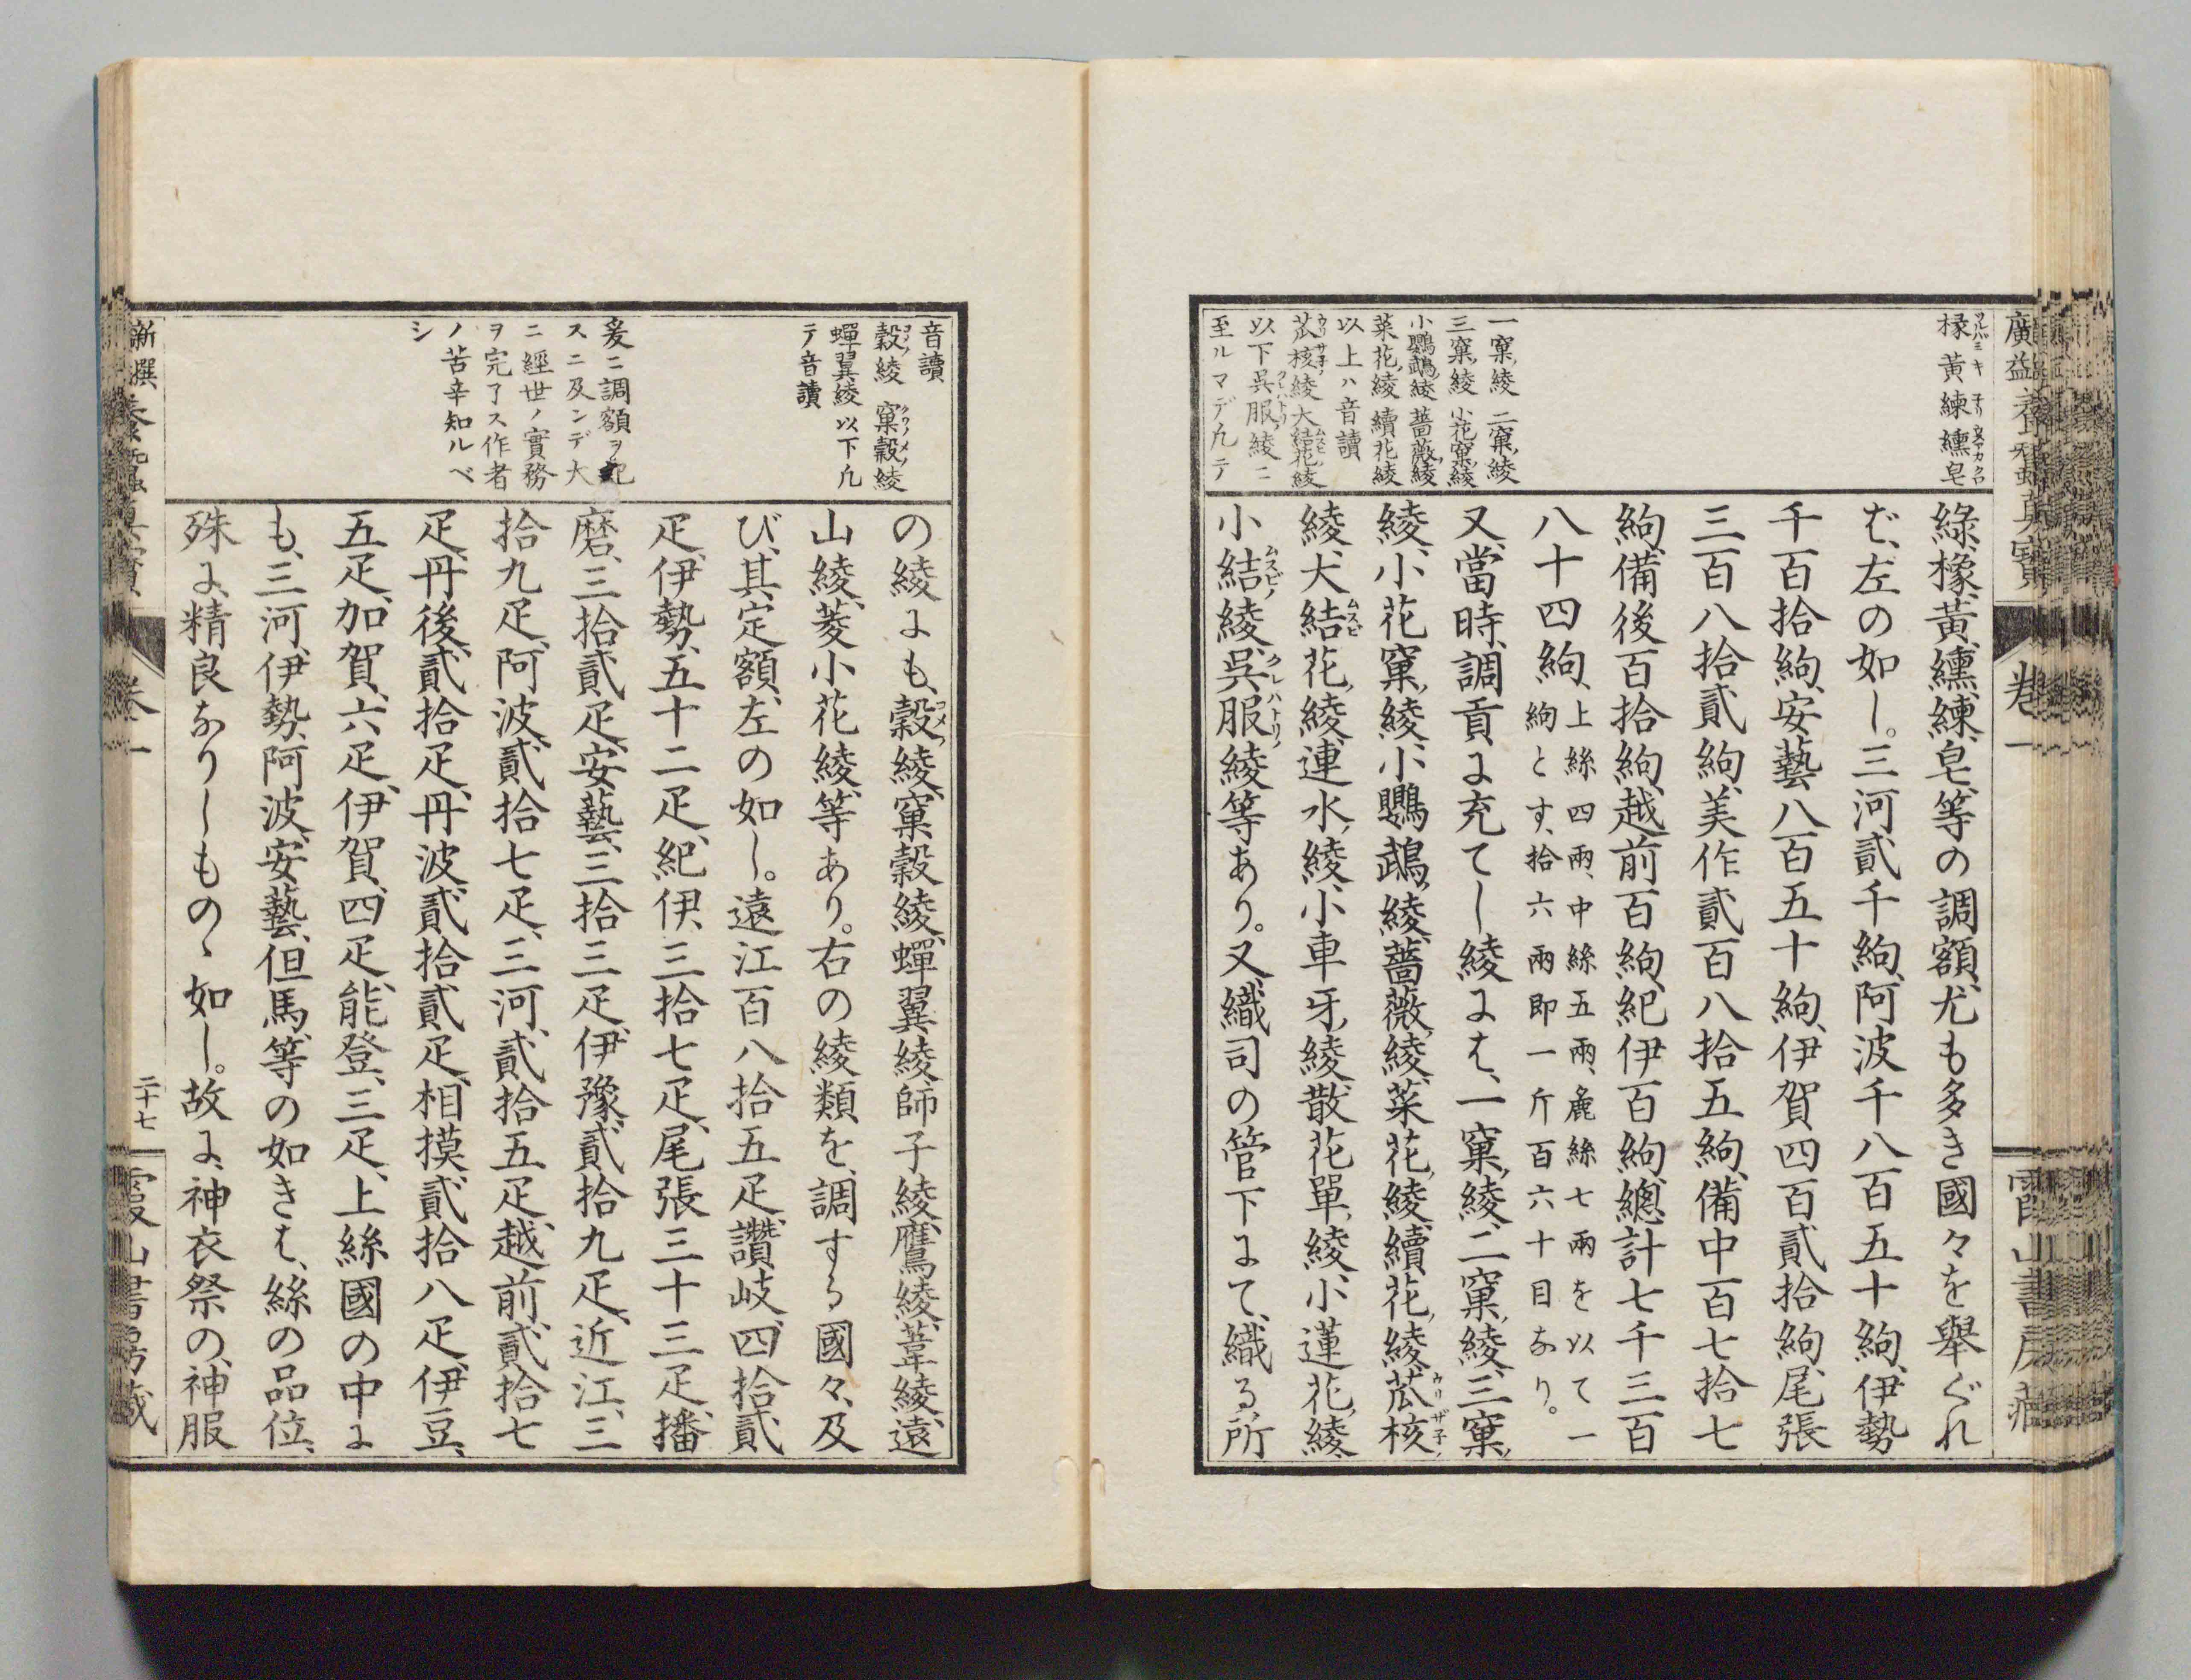 廣益養蠶眞寶
卷一
橡黃練纁皂
一窠綾二窠綾
三窠綾小花窠綾
小鸚鵡綾薔薇綾
菜花綾續花綾
以上ハ音讀
苽核綾大結花綾
以下吳服綾ニ
至ルマデ凢テ
綠、橡、黃、纁、練、皂、等の調額、尤も多き國々を舉ぐれ
ば、左の如し。三河貳千絇、阿波千八百五十絇、伊勢
千百拾絇、安藝八百五十絇、伊賀四百貳拾絇、尾張
三百八拾貳絇、美作貳百八拾五絇、備中百七拾七
絇、備後百拾絇、越前百絇、紀伊百絇、總計七千三百
八十四絇、上絲四兩、中絲五兩、麁絲七兩を以て一
絇とす、拾六兩即一斤百六十目なり。
又、當時、調貢に充てし綾には、一窠綾、二窠綾、三窠
綾、小花窠綾、小鸚鵡綾、薔薇綾、菜花綾、續花綾、苽核
綾、大結花綾、連水綾、小車牙綾、散花單綾、小蓮花綾、
小結綾、吳服綾等あり。又、織司の管下にて、織る所
音讀
縠綾窠縠綾
蟬翼綾以下凢
テ音讀
爰ニ調額ヲ記
スニ及ンデ大
ニ經世ノ實務
ヲ完了ス作者
ノ苦辛知ルベ
シ
の綾にも、縠綾、窠縠綾、蟬翼綾、師子綾、鷹綾、葦綾、遠
山綾、菱小花綾、等あり。右の綾類を、調する國々、及
び、其定額、左の如し。遠江百八拾五疋、讚岐、四拾貳
疋、伊勢、五十二疋、紀伊、三拾七疋、尾張三十三疋、播
磨、三拾貳疋、安藝、三拾三疋、伊豫、貳拾九疋、近江、三
拾九疋、阿波、貳拾七疋、三河、貳拾五疋、越前、貳拾七
疋、丹後、貳拾疋、丹波、貳拾貳疋、相摸、貳拾八疋、伊豆、
五疋、加賀、六疋、伊賀、四疋、能登、三疋、上絲國の中に
も、三河、伊勢、阿波、安藝、但馬、等の如きは、絲の品位、
殊に、精良なりしものゝ如し。故に、神衣祭の、神服
新撰養蠶眞寶
卷一
二十七
霞山書房藏